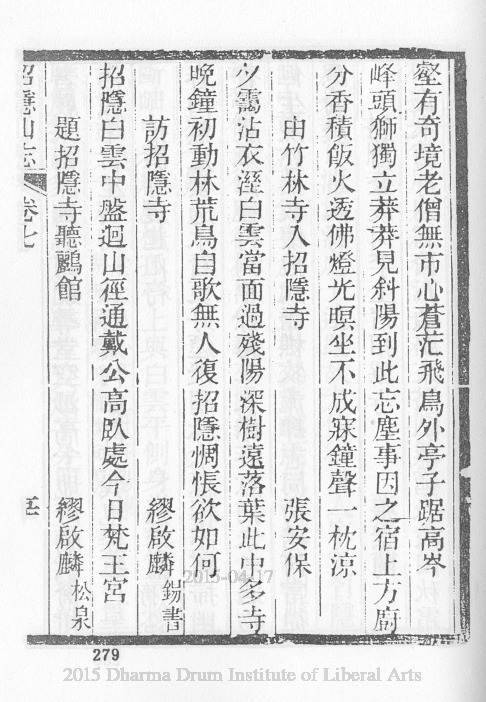 壑有奇境老僧無市心蒼茫飛鳥外亭子踞高岑
峰頭獅獨立莽莽見斜陽到此忘塵事因之宿上方廚
分香積飯火透佛燈光暝坐不成寐鐘聲一枕涼
由竹林寺入招隱寺 張安保
夕靄沾衣溼白雲當面過殘陽深樹遠落葉此中多寺
晚鐘初動林荒鳥自歌無人復招隱惆悵欲如何
訪招隱寺 繆啟麟 錫書
招隱白雲中盤迴山徑通戴公高臥處今日梵王宮
題招隱寺聽鸝館 繆啟麟 松泉
招隱山志 卷七
279
2015-04-17
2015 Dharma Drum Institute of Liberal Arts